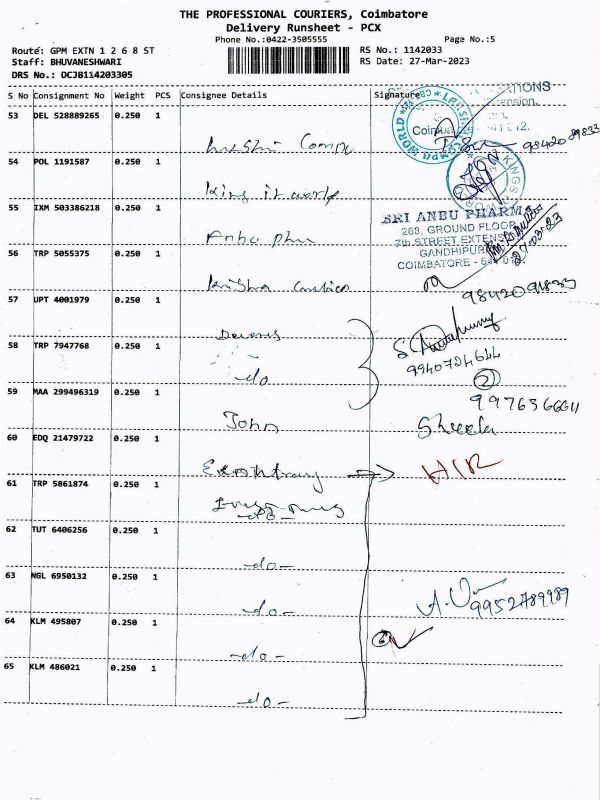 THE PROFESSIONAL COURIERS, Coimbatore
Delivery Runsheet - PCX
Phone No.:0422-3505555 Page No.:5
Route: GPM EXTN 1 2 6 8 ST RS No.: 1142033
Staff: BHUVANESHWARI RS Date: 27-Mar-2023
DRS No.: DCJB114203305
S No Consignment No Weight PCS Consignee Details Signature
53 DEL 528889265 0.250 1
98420 89833
54 POL 1191587 0.250 1
king it world
55 IXM 503386218 0.250 1
SRI ANBU PHARMA
268, GROUND FLOOR
7th STREET EXTENSION
GANDHIPURAM
COIMBATORE - 641 012.
27-03-23
56 TRP 5055375 0.250 1
Krishna
57 UPT 4001979 0.250 1
58 TRP 7947768 0.250 1
-do
9940724644
2
59 MAA 299496319 0.250 1
John Sheela
60 EDQ 21479722 0.250 1
61 TRP 5861874 0.250 1
-do-
62 TUT 6406256 0.250 1
-do-
63 NGL 6950132 0.250 1
-do- 9952789989
64 KLM 495807 0.250 1
-do- 6
65 KLM 486021 0.250 1
-do-